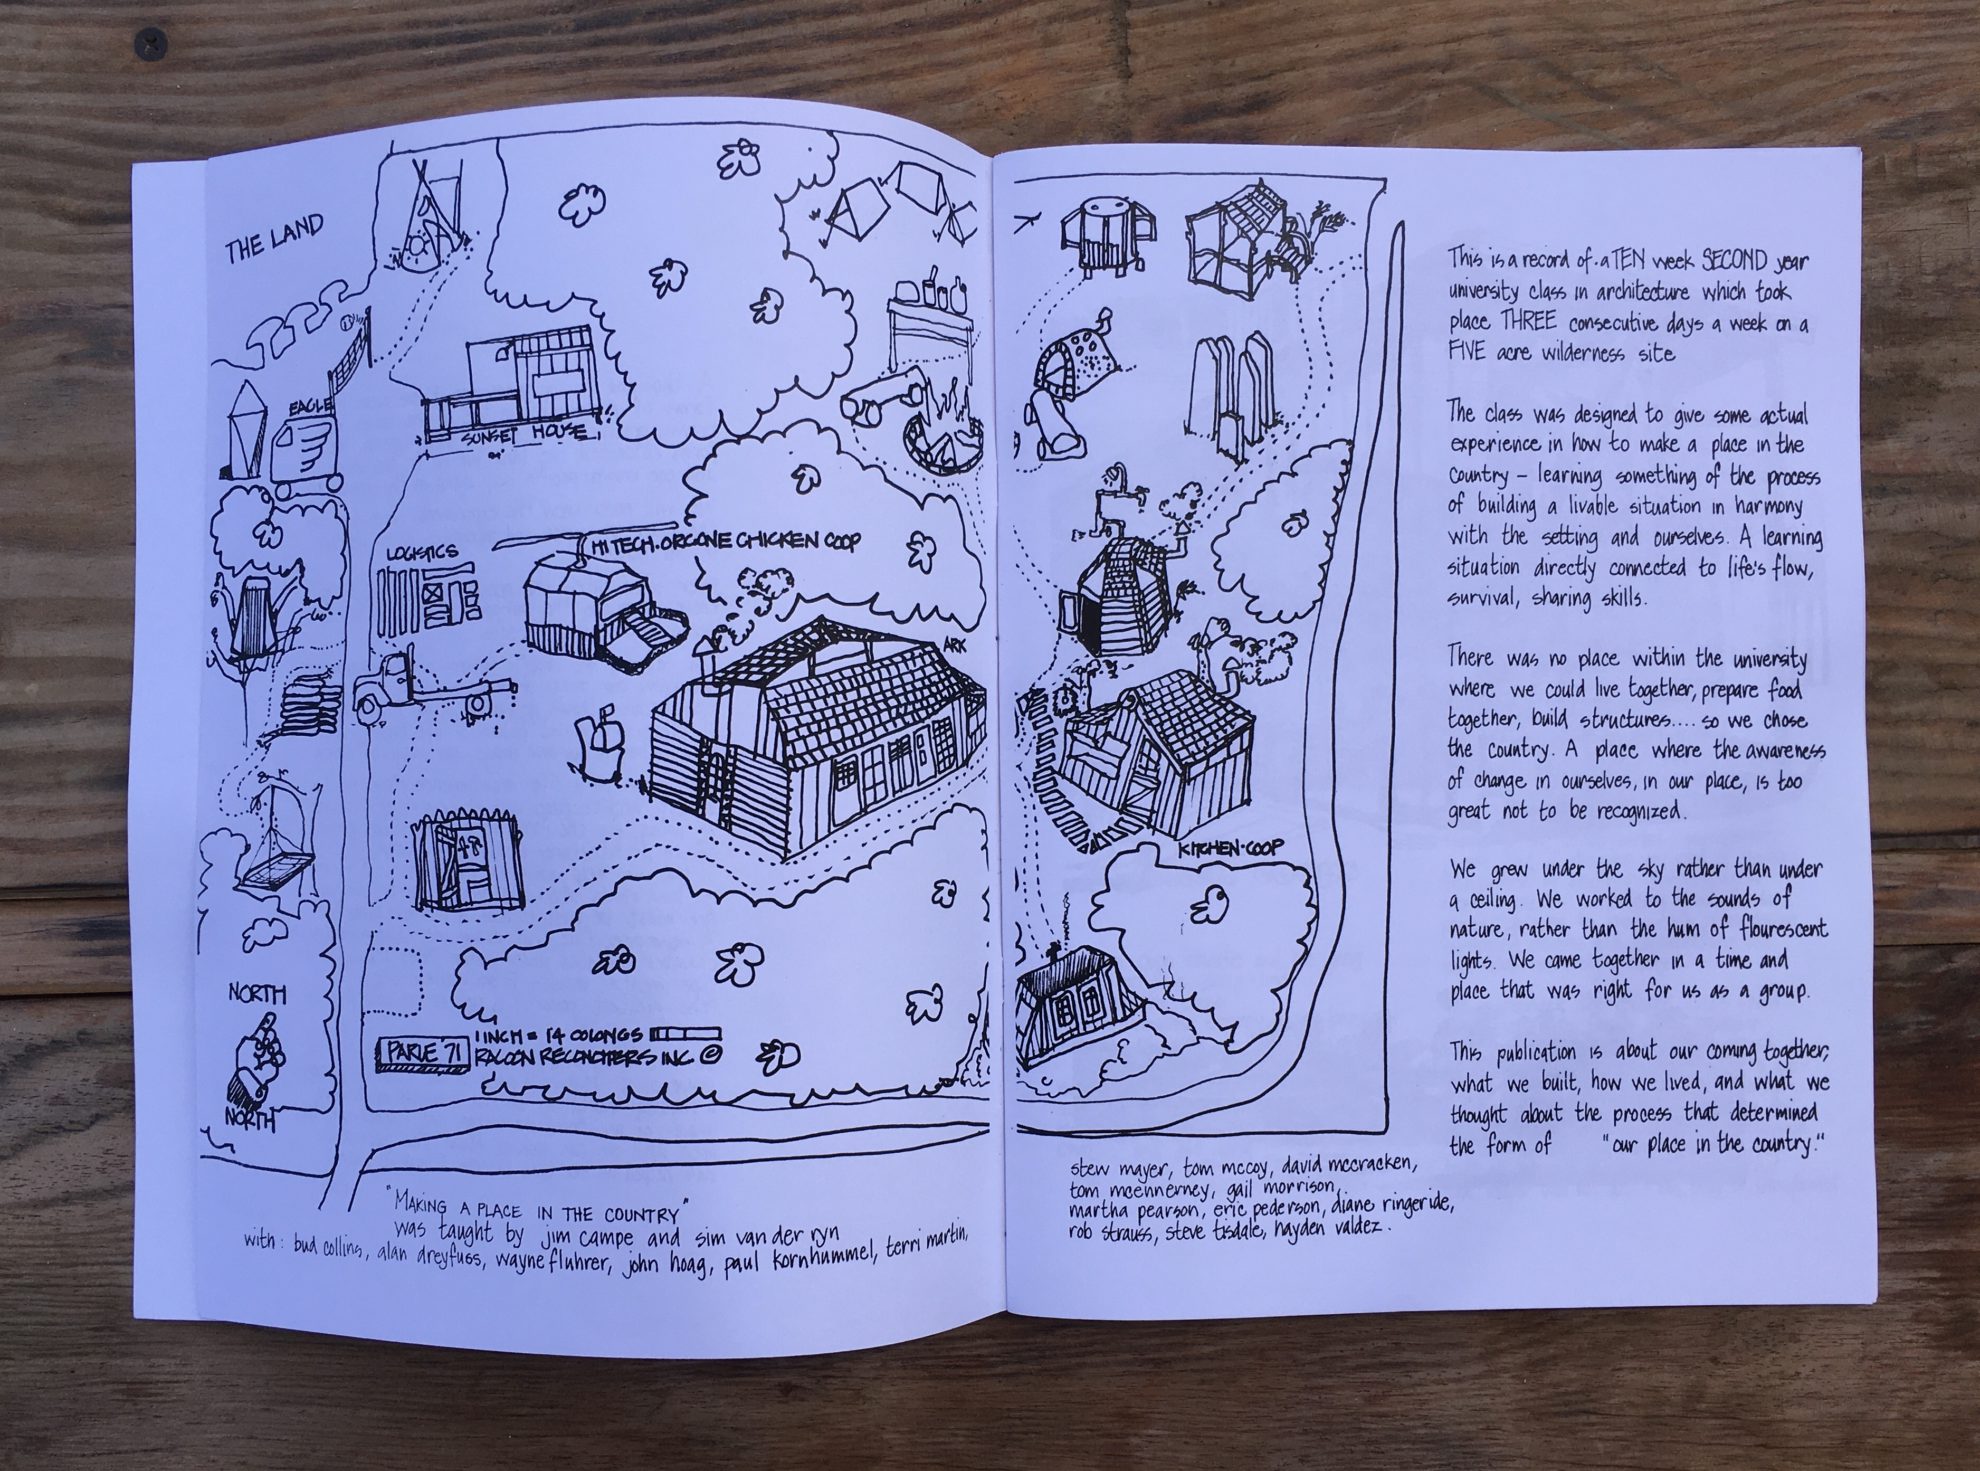 THE LAND
EAGLE
SUNSET HOUSE
LOGISTICS
HI TECH·ORGONE CHICKEN COOP
ARK
KITCHEN·COOP
NORTH
NORTH
1 INCH = 14 COLONGS
RACOON RECONOITERS INC ©
"MAKING A PLACE IN THE COUNTRY"
was taught by jim campe and sim van der ryn
with: bud collins, alan dreyfuss, wayne fluhrer, john hoag, paul kornhummel, terri martin,
stew mayer, tom mccoy, david mccracken,
tom mcennerney, gail morrison,
martha pearson, eric pederson, diane ringeride,
rob strauss, steve tisdale, hayden valdez.
This is a record of a TEN week SECOND year
university class in architecture which took
place THREE consecutive days a week on a
FIVE acre wilderness site
The class was designed to give some actual
experience in how to make a place in the
country – learning something of the process
of building a livable situation in harmony
with the setting and ourselves. A learning
situation directly connected to life's flow,
survival, sharing skills.
There was no place within the university
where we could live together, prepare food
together, build structures.... so we chose
the country. A place where the awareness
of change in ourselves, in our place, is too
great not to be recognized.
We grew under the sky rather than under
a ceiling. We worked to the sounds of
nature, rather than the hum of flourescent
lights. We came together in a time and
place that was right for us as a group.
This publication is about our coming together,
what we built, how we lived, and what we
thought about the process that determined
the form of "our place in the country."